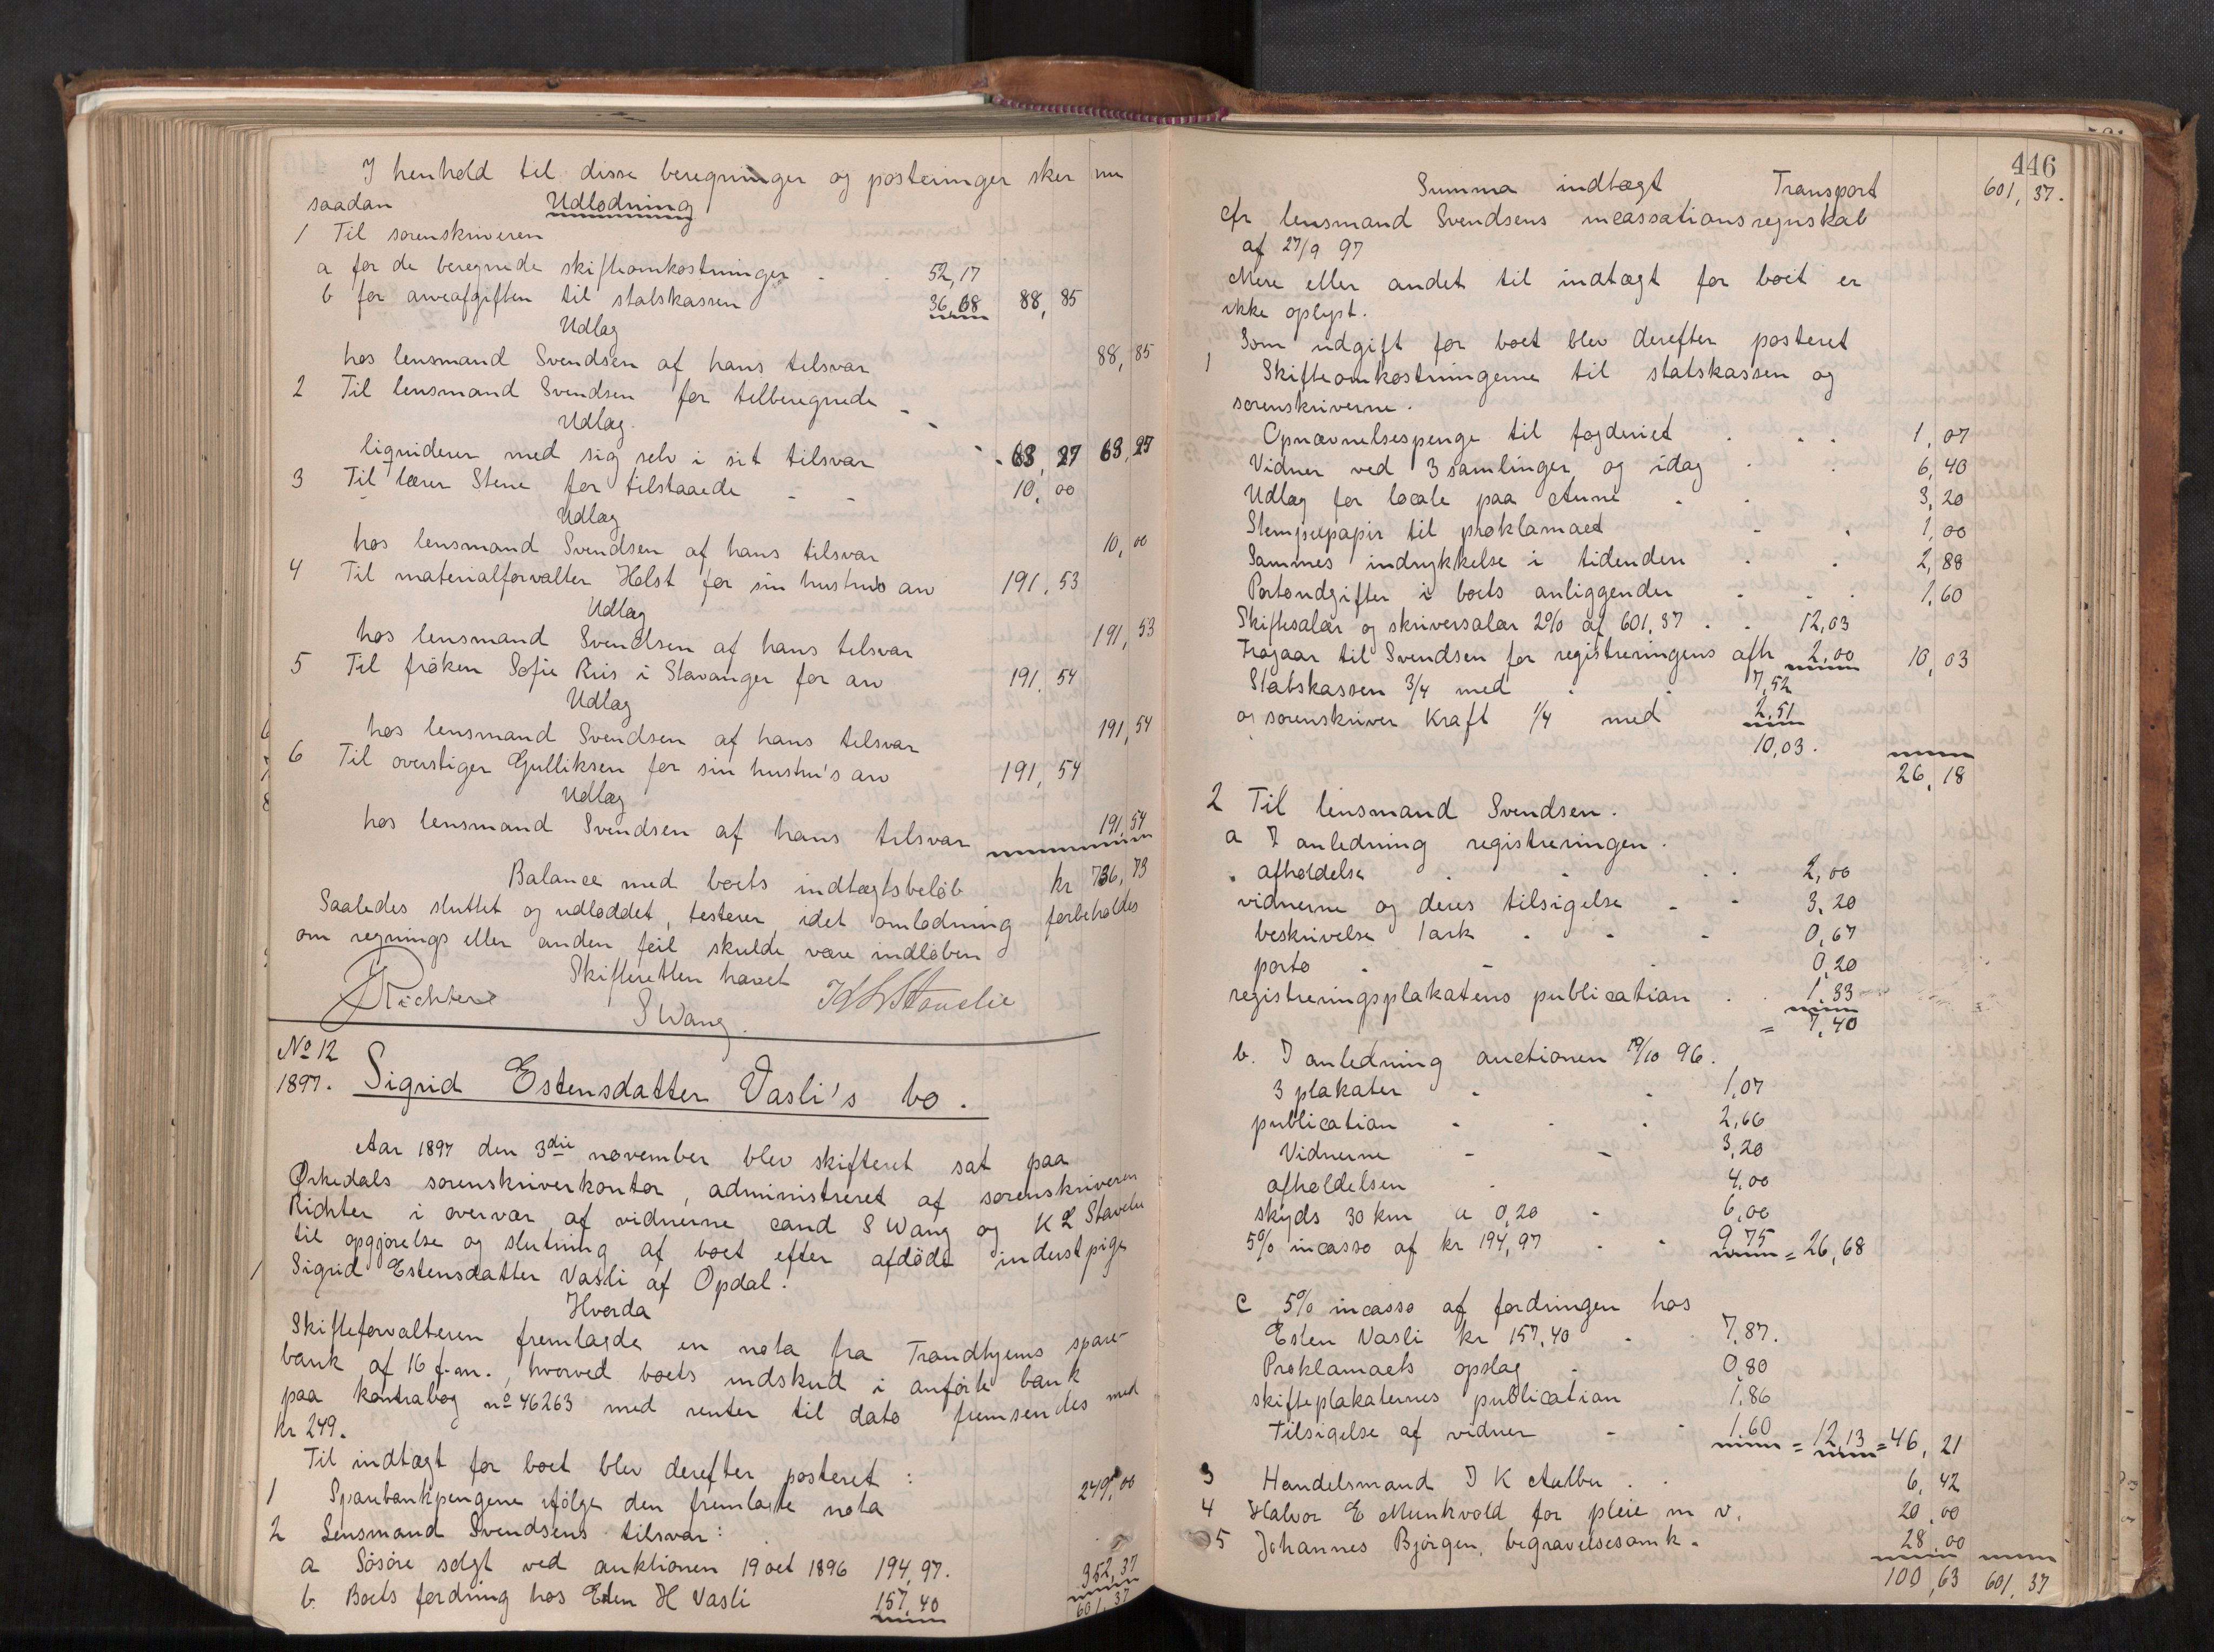 I henhold til disse beregninger og posteringer sker nu
saadan Udlodning
1 Til sorenskriveren
a for de beregnede skifteomkostninger - - 52,17
b for arveafgiften til statskassen 36,68 88,85
Udlæg
hos lensmand Svendsen af hans tilsvar 88,85
2 Til lensmand Svendsen for tilberegnede -
Udlæg. -
liqviderer med sig selv i sit tilsvar - - 63,27 63,27
3 Til lærer Stene for tilstaaede - - 10,00
Udlæg
hos lensmand Svendsen af hans tilsvar 10,00
4 Til materialforvalter Holst for sin hustrus arv 191,53
Udlæg
hos lensmand Svendsen af hans tilsvar 191,53
5 Til frøken Sofie Riis i Stavanger for arv 191,54
Udlæg
hos lensmand Svendsen af hans tilsvar 191,54
6 Til overstiger Gulliksen for sin hustru's arv 191,54
Udlæg
hos lensmand Svendsen af hans tilsvar 191,54
Balance med boets indtægtsbeløb kr 736,73
Saaledes sluttet og udloddet, testerer idet omlodning forbeholdes
om regnings eller anden feil skulde være indløben
Skifteretten hævet
Richter
S Wang. K L Stavelie
No 12
1897. Sigrid Estensdatter Vasli's bo.
Aar 1897 den 3die november blev skifteret sat paa
Orkedals sorenskriverkontor, administreret af sorenskriveren
Richter i overvær af vidnerne cand S Wang og K L Stavelie
til opgjørelse og slutning af boet efter afdøde inderstpige
Sigrid Estensdatter Vasli af Opdal.
Hvorda
Skifteforvalteren fremlagde en nota fra Trondhjems spare-
bank af 16 f.m., hvorved boets indskud i anførte bank
paa kontrabog no 46263 med renter til dato fremsendes med
kr 249.
Til indtægt for boet blev derefter posteret:
1 Sparebankpengene ifølge den fremlagte nota 249,00
2 Lensmand Svendsens tilsvar:
a Løsøre solgt ved auktionen 19 oct 1896 194,97.
b. Boets fordring hos Esten H Vasli 157,40 352,37
601,37
446
Summa indtægt Transport 601,37.
cfr lensmand Svendsens incassationsregnskab
af 27/9 97
Mere eller andet til indtægt for boet er
ikke oplyst.
Som udgift for boet blev derefter posteret
1 Skifteomkostningerne til statskassen og
sorenskriverne.
Opnævnelsespenge til fogderiet . . . 1,07
Vidner ved 3 samlinger og idag . . 6,40
Udlæg for locale paa Aune . . 3,20
Stempelpapir til proklamaet - . 1,00
Sammes indrykkelse i tidenden . . 2,88
Portoudgifter i boets anliggender . . . 1,60
Skiftesalær og skriversalær 2% af 601,37 . . 12,03
Fragaar til Svendsen for registreringens afh 2,00 10,03
Statskassen 3/4 med . . 7,52
og sorenskriver Kraft 1/4 med 2,51
10,03.
26,18
2 Til lensmand Svendsen.
a I anledning registreringen.
afholdelse . . . . 2,00
vidnerne og deres tilsigelse - - 3,20
beskrivelse 1 ark . - - 0,67
porto . - . 0,20
registreringsplakatens publication . . 1,33
= 7,40
b. I anledning auctionen 19/10 96.
3 plakater . . 1,07
publication . . . 2,66
Vidnerne - - 3,20
afholdelsen . 4,00
skyds 30 km a 0,20 - 6,00
5% incasso af kr 194,97 . . 9,75 = 26,68
c 5% incasso af fordringen hos
Esten Vasli kr 157,40 . . 7,87.
Proklamaets opslag . 0,80
skifteplakaternes publication 1,86
Tilsigelse af vidner - - 1,60 = 12,13 = 46,21
3 Handelsmand I K Aalbu . . 6,42
4 Halvor E Munkvold for pleie m v. 20,00
5 Johannes Bjørgen, begravelsesomk. 28,00
100,63 601,37